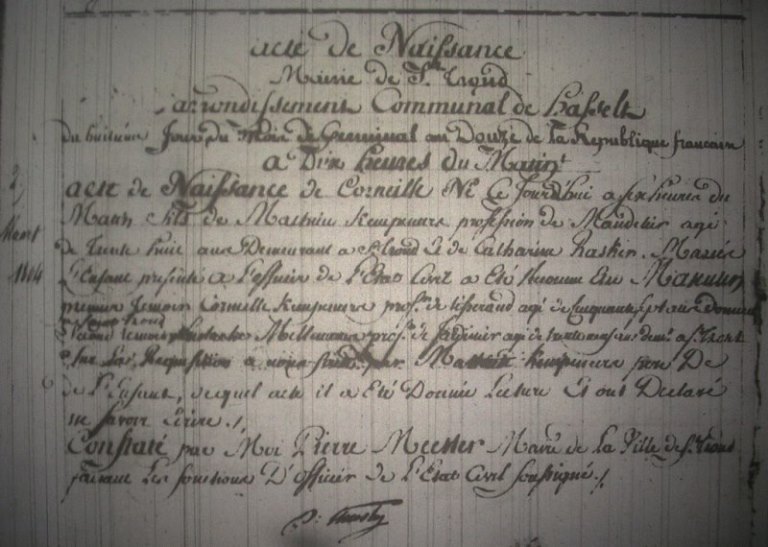 acte de Naissance
Mairie de St. Trond
arrondissement Communal de hasselt
du huitieme Jour du Mois de Germinal an Douze de la Republique francaise
a Dix heures du Matin
acte de Naissance de Corneille Né Ce Jourdhui a six heures du
Matin fils de Mathieu Kempeneers profession de agé
de trente huit ans Demeurant a St Trond Et de Catharine Mariée
L'Enfant presenté a l'officier de l'Etat Civil a Eté Reconnu Etre Masculin
premier Temoin Corneille Kempeneers prof. de tisserand agé de Cinquante sept ans
second temoin prof. de Jardinier agé de trente ans dem. a St Trond
Sur La Requisition a nous faite par Mathieu Kempeneers pere De
de l'Enfant, duquel acte il a Eté Donnée Lecture Et ont Declaré
ne savoir Ecrire
Constaté par Moi Pierre Meester Maire de La Ville de St. Trond
faisant Les fonctions D'officier de l'Etat Civil soussigné
Mars
1804